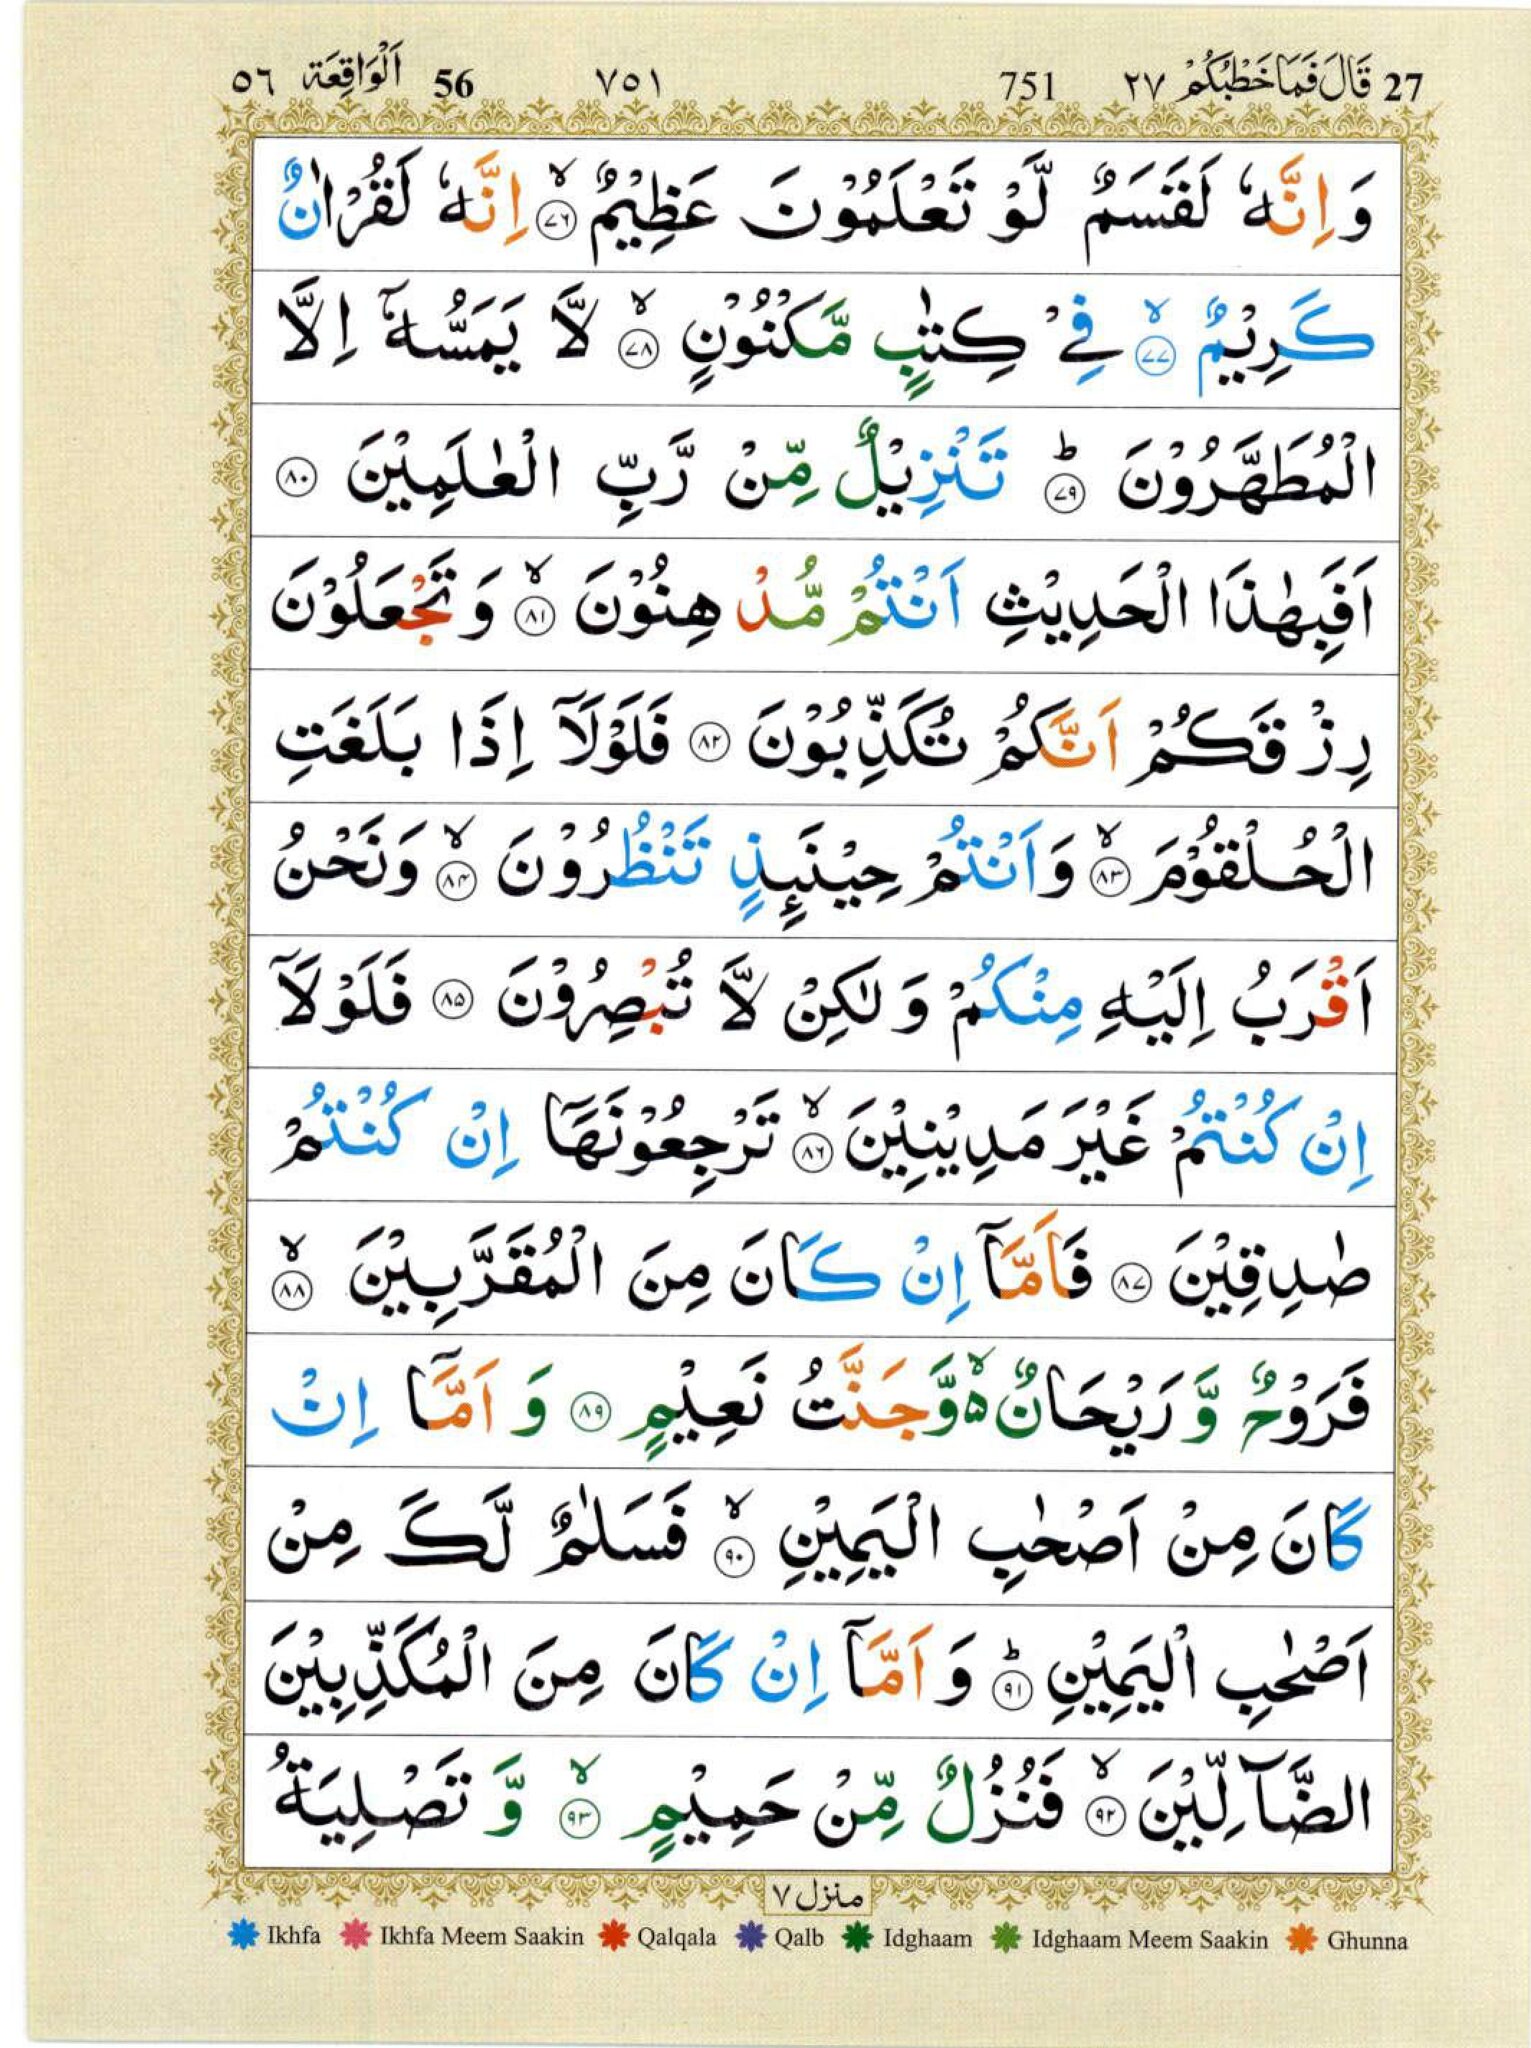 27 قَالَ فَمَا خَطْبُكُمْ ٢٧ 751 ٧٥١ 56 اَلْوَاقِعَة ٥٦
وَ اِنَّهٗ لَقَسَمٌ لَّوْ تَعْلَمُوْنَ عَظِيْمٌ ۙ‏﴿۷۶﴾ اِنَّهٗ لَقُرْاٰنٌ
كَرِيْمٌ ۙ‏﴿۷۷﴾ فِىْ كِتٰبٍ مَّكْنُوْنٍ ۙ‏﴿۷۸﴾ لَّا يَمَسُّهٗۤ اِلَّا
الْمُطَهَّرُوْنَ ؕ‏﴿۷۹﴾ تَنْزِيْلٌ مِّنْ رَّبِّ الْعٰلَمِيْنَ ﴿۸۰﴾
اَفَبِهٰذَا الْحَدِيْثِ اَنْتُمْ مُّدْهِنُوْنَ ۙ‏﴿۸۱﴾ وَ تَجْعَلُوْنَ
رِزْقَكُمْ اَنَّكُمْ تُكَذِّبُوْنَ ﴿۸۲﴾ فَلَوْلَاۤ اِذَا بَلَغَتِ
الْحُلْقُوْمَ ۙ‏﴿۸۳﴾ وَاَنْتُمْ حِيْنَئِذٍ تَنْظُرُوْنَ ۙ‏﴿۸۴﴾ وَنَحْنُ
اَقْرَبُ اِلَيْهِ مِنْكُمْ وَلٰكِنْ لَّا تُبْصِرُوْنَ ﴿۸۵﴾ فَلَوْلَاۤ
اِنْ كُنْتُمْ غَيْرَ مَدِيْنِيْنَ ۙ‏﴿۸۶﴾ تَرْجِعُوْنَهَاۤ اِنْ كُنْتُمْ
صٰدِقِيْنَ ﴿۸۷﴾ فَاَمَّاۤ اِنْ كَانَ مِنَ الْمُقَرَّبِيْنَ ۙ‏﴿۸۸﴾
فَرَوْحٌ وَّ رَيْحَانٌ ۙ۬ وَّجَنَّتُ نَعِيْمٍ ﴿۸۹﴾ وَ اَمَّاۤ اِنْ
كَانَ مِنْ اَصْحٰبِ الْيَمِيْنِ ۙ‏﴿۹۰﴾ فَسَلٰمٌ لَّكَ مِنْ
اَصْحٰبِ الْيَمِيْنِ ؕ‏﴿۹۱﴾ وَ اَمَّاۤ اِنْ كَانَ مِنَ الْمُكَذِّبِيْنَ
الضَّآلِّيْنَ ۙ‏﴿۹۲﴾ فَنُزُلٌ مِّنْ حَمِيْمٍ ۙ‏﴿۹۳﴾ وَّ تَصْلِيَةُ
منزل ٧
Ikhfa Ikhfa Meem Saakin Qalqala Qalb Idghaam Idghaam Meem Saakin Ghunna